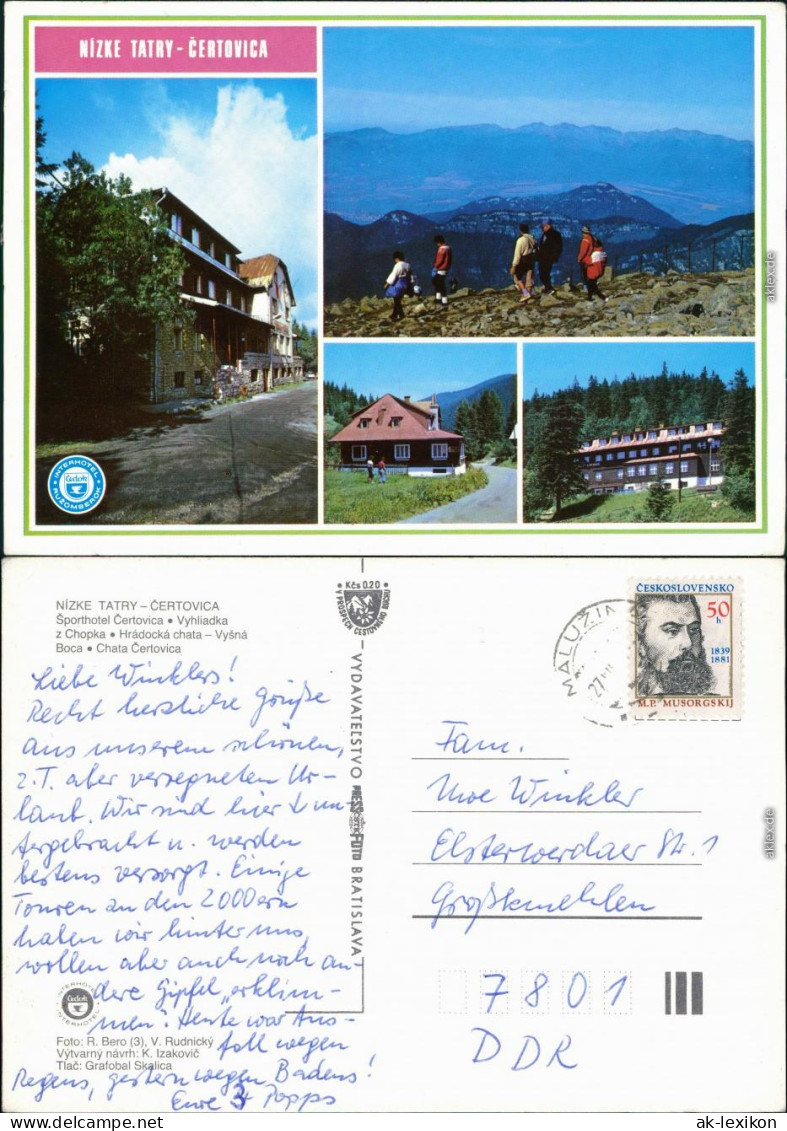 NÍZKE TATRY - ČERTOVICA
INTERHOTEL
Čedok
RUŽOMBEROK
aklex.de
NÍZKE TATRY – ČERTOVICA
Športhotel Čertovica • Vyhliadka
z Chopka • Hrádocká chata – Vyšná
Boca • Chata Čertovica
Liebe Winklers!
Recht herzliche Grüße
aus unserem schönen,
z.T. aber verregneten Ur-
laub. Wir sind hier un-
tergebracht u. werden
bestens versorgt. Einige
Touren an den 2000ern
haben wir hinter uns,
wollen aber auch noch an-
dere Gipfel „erklim-
men". Heute war Aus-
fall wegen
Regens, gestern wegen Badens!
Eure 3 Popps
INTERHOTEL
Čedok
INTERHOTEL
Foto: R. Bero (3), V. Rudnický
Výtvarný návrh: K. Izakovič
Tlač: Grafobal Skalica
• Kčs 0.20 •
V PROSPECH CESTOVNÉHO RUCHU
VYDAVATEĽSTVO PRESSFOTO BRATISLAVA
MALUŽINÁ
27
ČESKOSLOVENSKO
50
h
1839
1881
M.P. MUSORGSKIJ
Fam.
Uwe Winkler
Elsterwerdaer Str. 1
Großkmehlen
7801
DDR
aklex.de
ak-lexikon